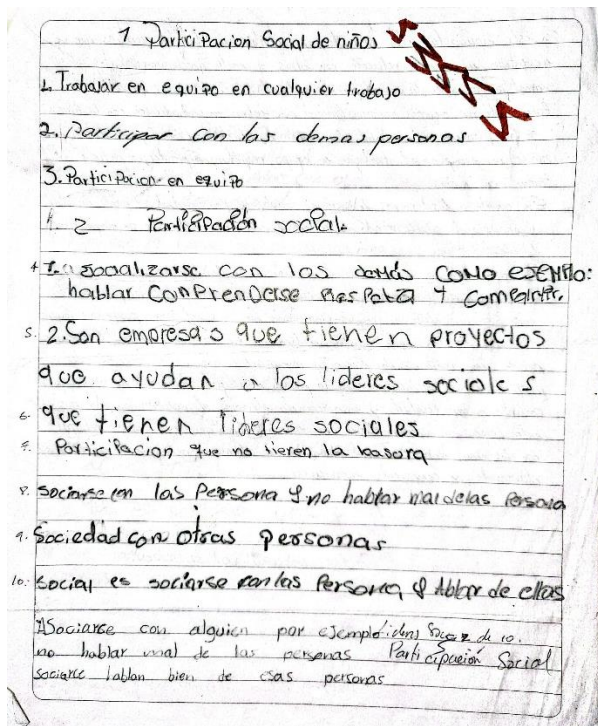 1 Participacion Social de niños
1. Trabajar en equipo en cualquier trabajo
2. Participar con las demas personas
3. Participacion en equipo
2 Participación social
4 1. a sosalizarse con los demás como ejemplo:
hablar comprenderse respeta y compartir.
5. 2. Son empresas que tienen proyectos
que ayudan a los lideres sociales
6. que tienen lideres sociales
7. Participacion que no tieren la basura
8. sociarse con las Persona y no hablar mal de las Persona
9. Sociedad con otras personas
10. social es sociarse con las Persona y Ablar de ellas
ASociarce con alguien por ejemplo de 10.
no hablar mal de las personas Participación Social
sociarce ablan bien de esas personas